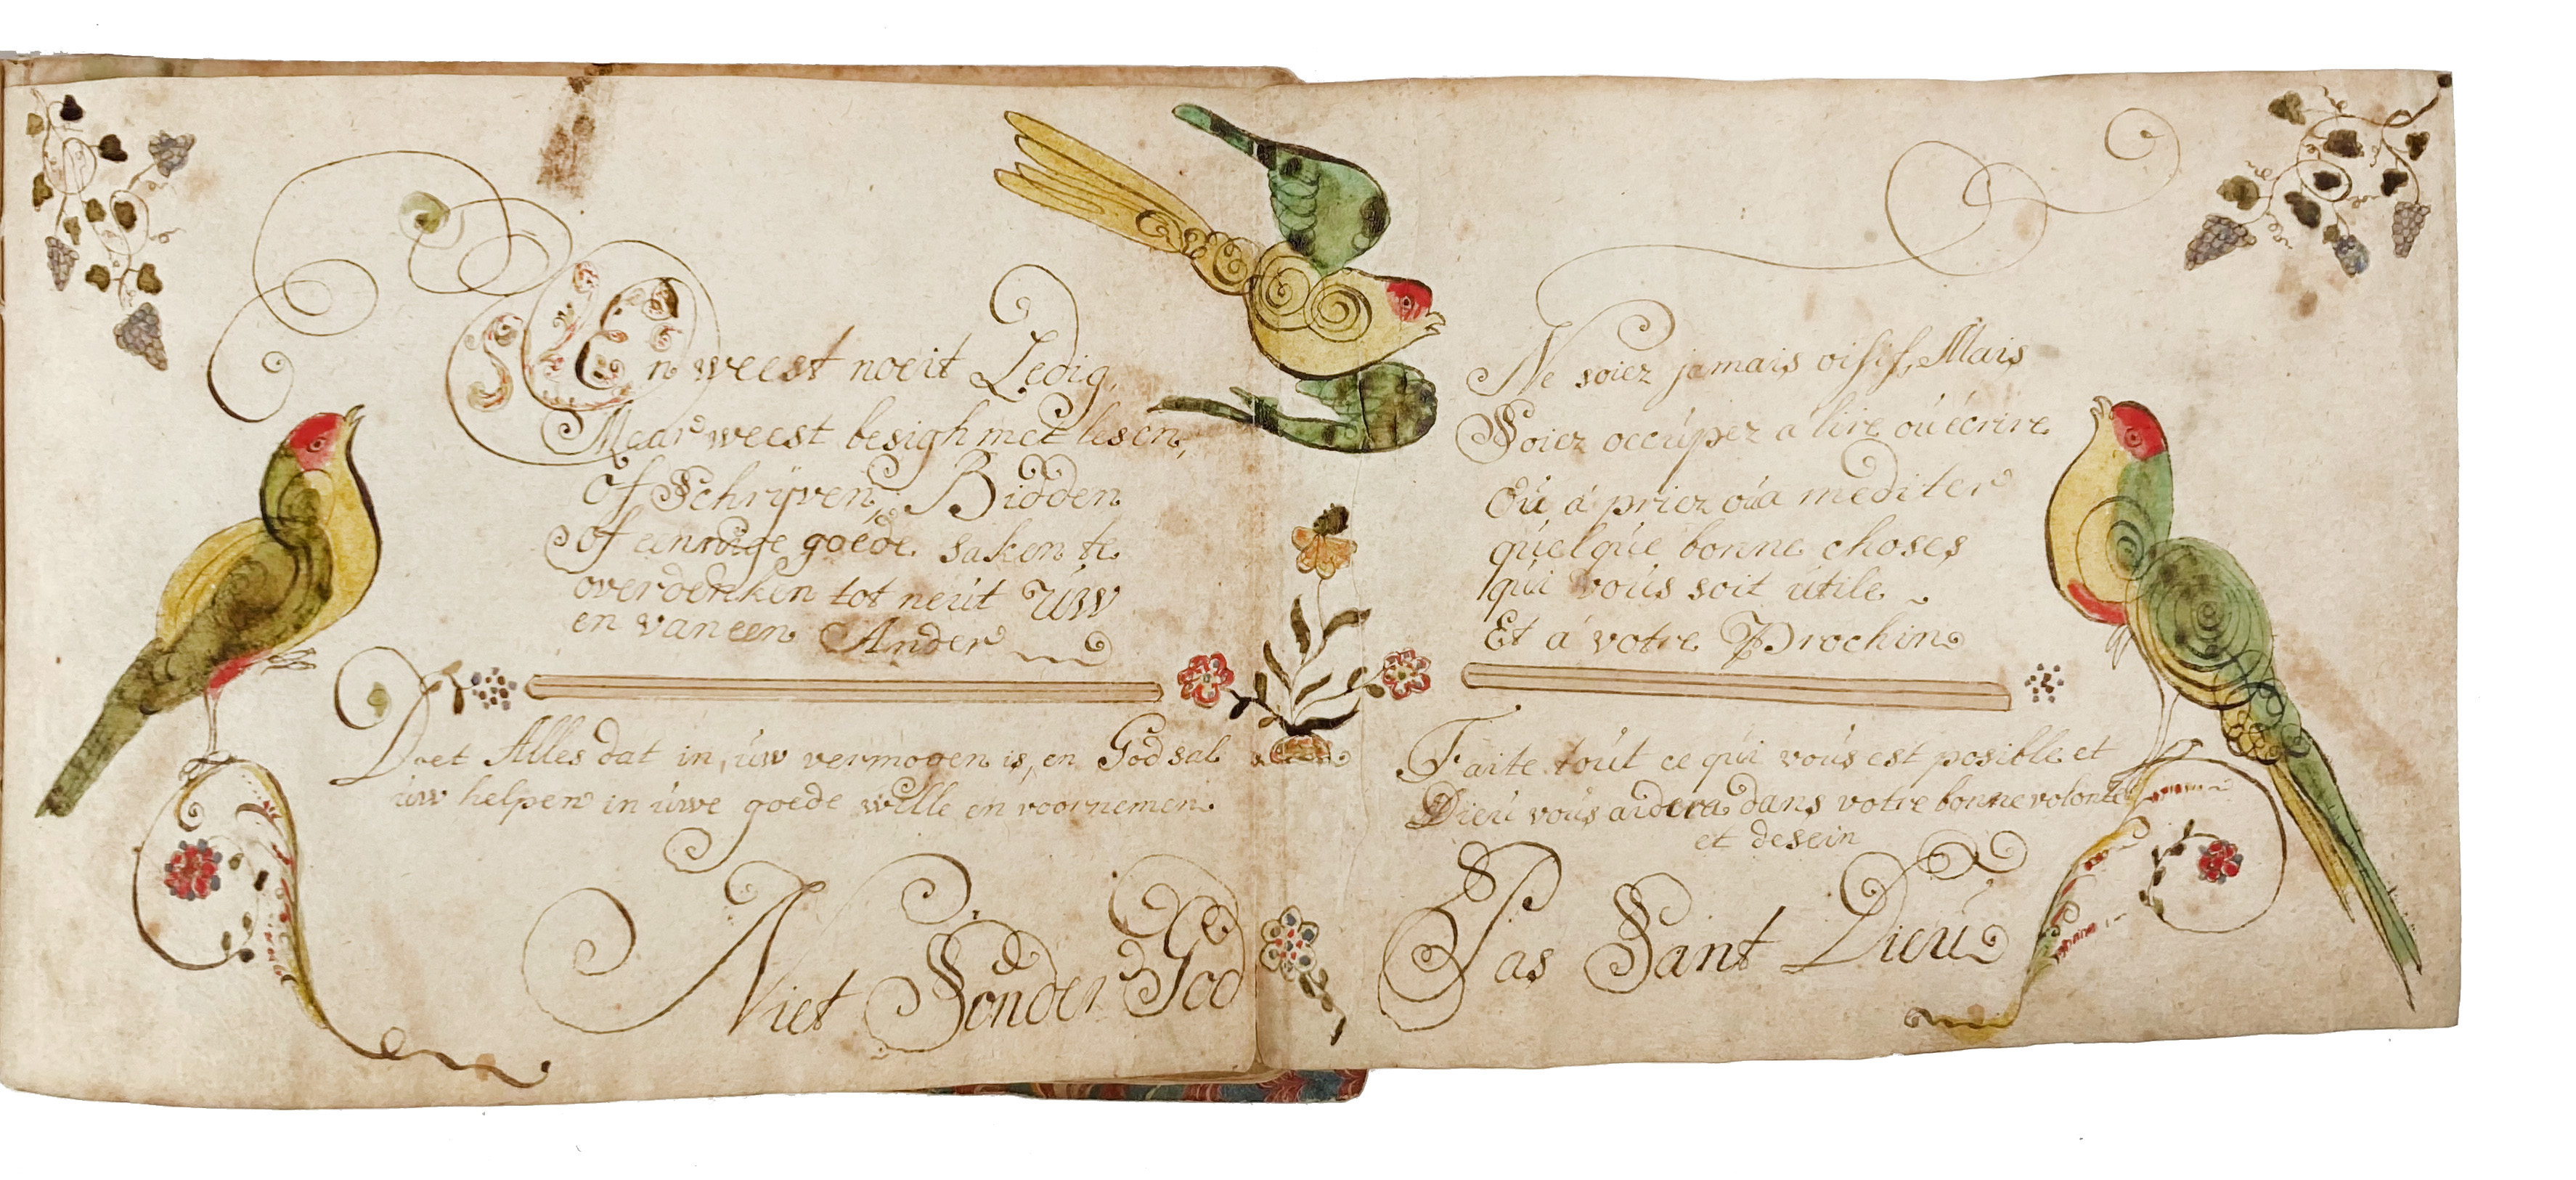 En weest noeit Ledig,
Maar weest besigh met lesen,
of Schrijven, Bidden
of eennige goede saken te
overdenken tot neut Uw
en van een Ander
Doet Alles dat in, uw vermogen is, en God sal
uw helpen in uwe goede wille en voornemen.
Niet Sonder God
Ne soiez jamais oisif, Mais
Soiez occúpez a lire oú écrire
Oú á priez oúa mediter
quelqúe bonne choses
qúi voús soit útile
Et á votre Prochin
Faite toút ce qúi voús est posible et
Dieú voús aidera dans votre bonne volonte
et desein
Pas Sant Dieú